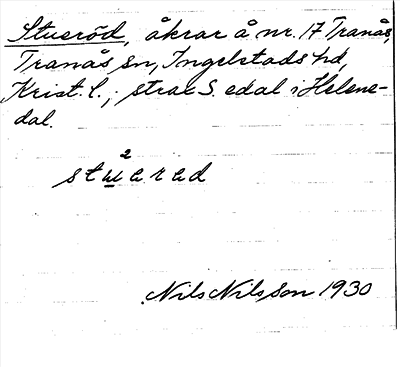 Stueröd, åkrar å nr. 17 Tranås,
Tranås sn, Ingelstads hd,
Krist. l.; strax S. edal i Helene-
dal.
2
stuərəd
Nils Nilsson 1930